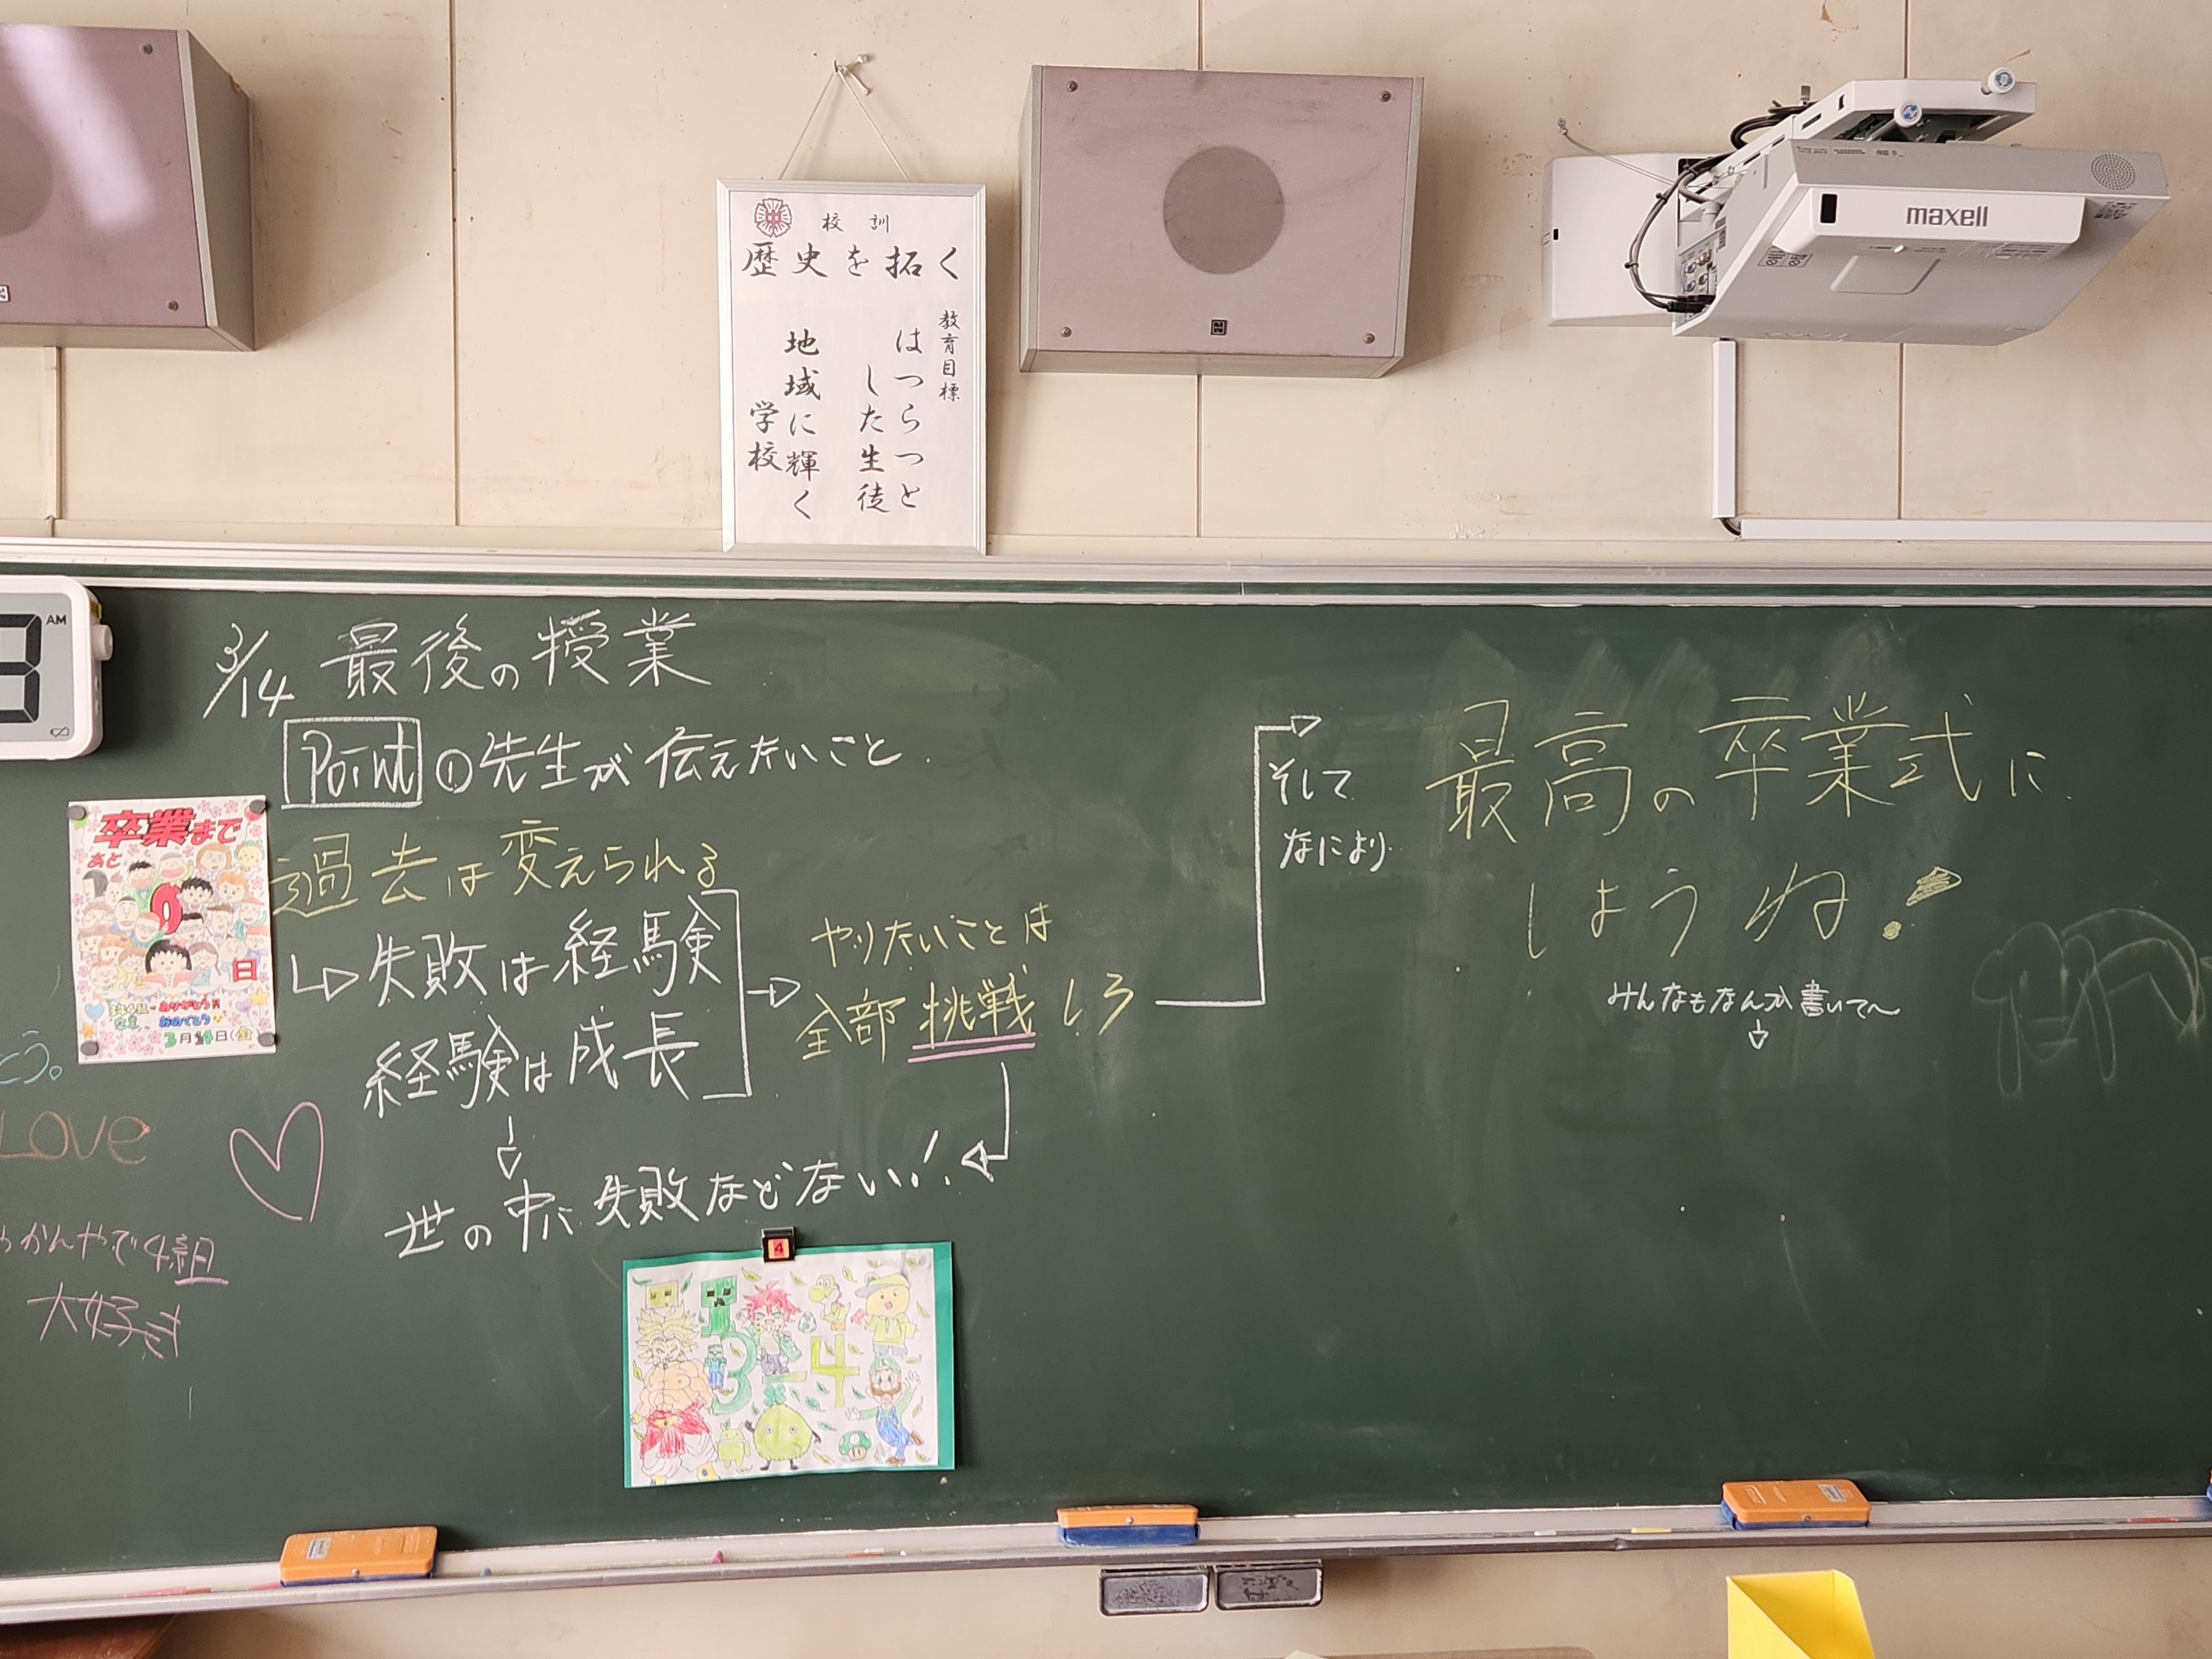 校訓
歴史を拓く
教育目標
はつらつと
した生徒
地域に輝く
学校
maxell
AM
3/14 最後の授業
Point ① 先生が伝えたいこと.
過去は変えられる
失敗は経験
経験は成長
世の中に失敗などない!
やりたいことは
全部挑戦しろ
そして
なにより
最高の卒業式に
しようね!
みんなもなんか書いて～
卒業まで
あと
0
日
3年4組
ありがとう!!
卒業
おめでとう
3月14日(金)
とう。
LOVE
かんやで4組
大好き
4
3-4